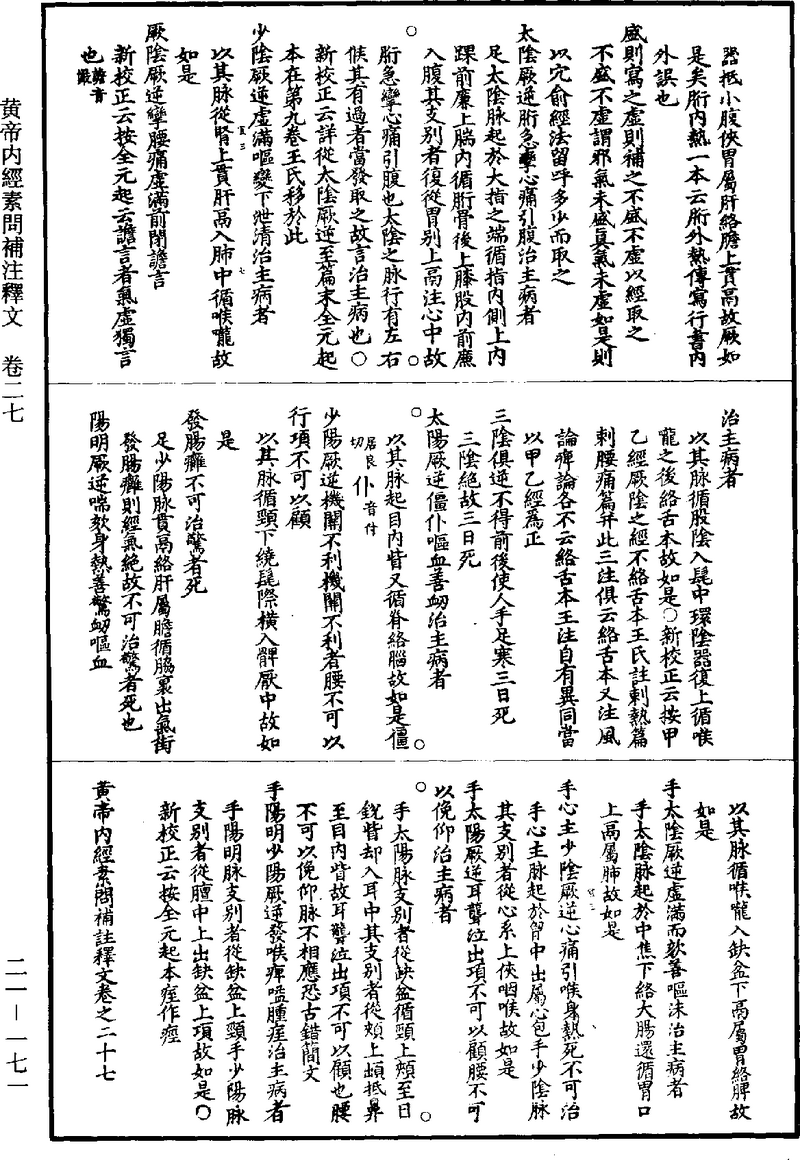 黄帝内經素問補注釋文　卷二七
二一—一七一
器抵小腹俠胃屬肝絡膽上貫膈故厥如
是矣胻内熱一本云胻外熱傳寫行書内
外誤也
盛則寫之虚則補之不盛不虚以經取之
不盛不虚謂邪氣未盛真氣未虚如是則
以穴俞經法留呼多少而取之
太陰厥逆胻急攣心痛引腹治主病者
足太陰脉起於大指之端循指内側上内
踝前廉上腨内循胻骨後上膝股内前廉
入腹其支别者復從胃别上膈注心中故
胻急攣心痛引腹也太陰之脉行有左右
候其有過者當發取之故言治主病也○
新校正云詳從太陰厥逆至篇末全元起
本在第九卷王氏移於此
少陰厥逆虚滿嘔變下泄清治主病者
以其脉從腎上貫肝膈入肺中循喉嚨故
如是
厥陰厥逆攣腰痛虚滿前閉譫言
新校正云按全元起云譫言者氣虚獨言
也譫音嚴
治主病者
以其脉循股陰入髦中環陰器復上循喉
嚨之後絡舌本故如是○新校正云按甲
乙經厥陰之經不絡舌本王氏註刺熱篇
刺腰痛篇并此三注俱云絡舌本又注風
論痺論各不云絡舌本王注自有異同當
以甲乙經爲正
三陰俱逆不得前後使人手足寒三日死
三陰絶故三日死
太陽厥逆僵仆嘔血善衂治主病者
以其脉起目内眥又循脊絡腦故如是僵
居良切仆音付
少陽厥逆機關不利機關不利者腰不可以
行項不可以顧
以其脉循頸下繞髦際横入髀厥中故如
是
發腸癰不可治驚者死
足少陽脉貫膈絡肝屬膽循脇裏出氣街
發腸癰則經氣絶故不可治驚者死也
陽明厥逆喘欬身熱善驚衂嘔血
以其脉循喉嚨入缺盆下膈屬胃絡脾故
如是
手太陰厥逆虚滿而欬善嘔沫治主病者
手太陰脉起於中焦下絡大腸還循胃口
上膈屬肺故如是
手心主少陰厥逆心痛引喉身熱死不可治
手心主脉起於胷中出屬心包手少陰脉
其支别者從心系上俠咽喉故如是
手太陽厥逆耳聾泣出項不可以顧腰不可
以俛仰治主病者
手太陽脉支别者從缺盆循頸上頰至目
銳眥却入耳中其支别者從頰上䪼抵鼻
至目内眥故耳聾泣出項不可以顧也腰
不可以俛仰脉不相應恐古錯簡文
手陽明少陽厥逆發喉痺嗌腫痓治主病者
手陽明脉支别者從缺盆上頸手少陽脉
支别者從膻中上出缺盆上項故如是○
新校正云按全元起本痓作痙
黄帝内經素問補註釋文卷之二十七